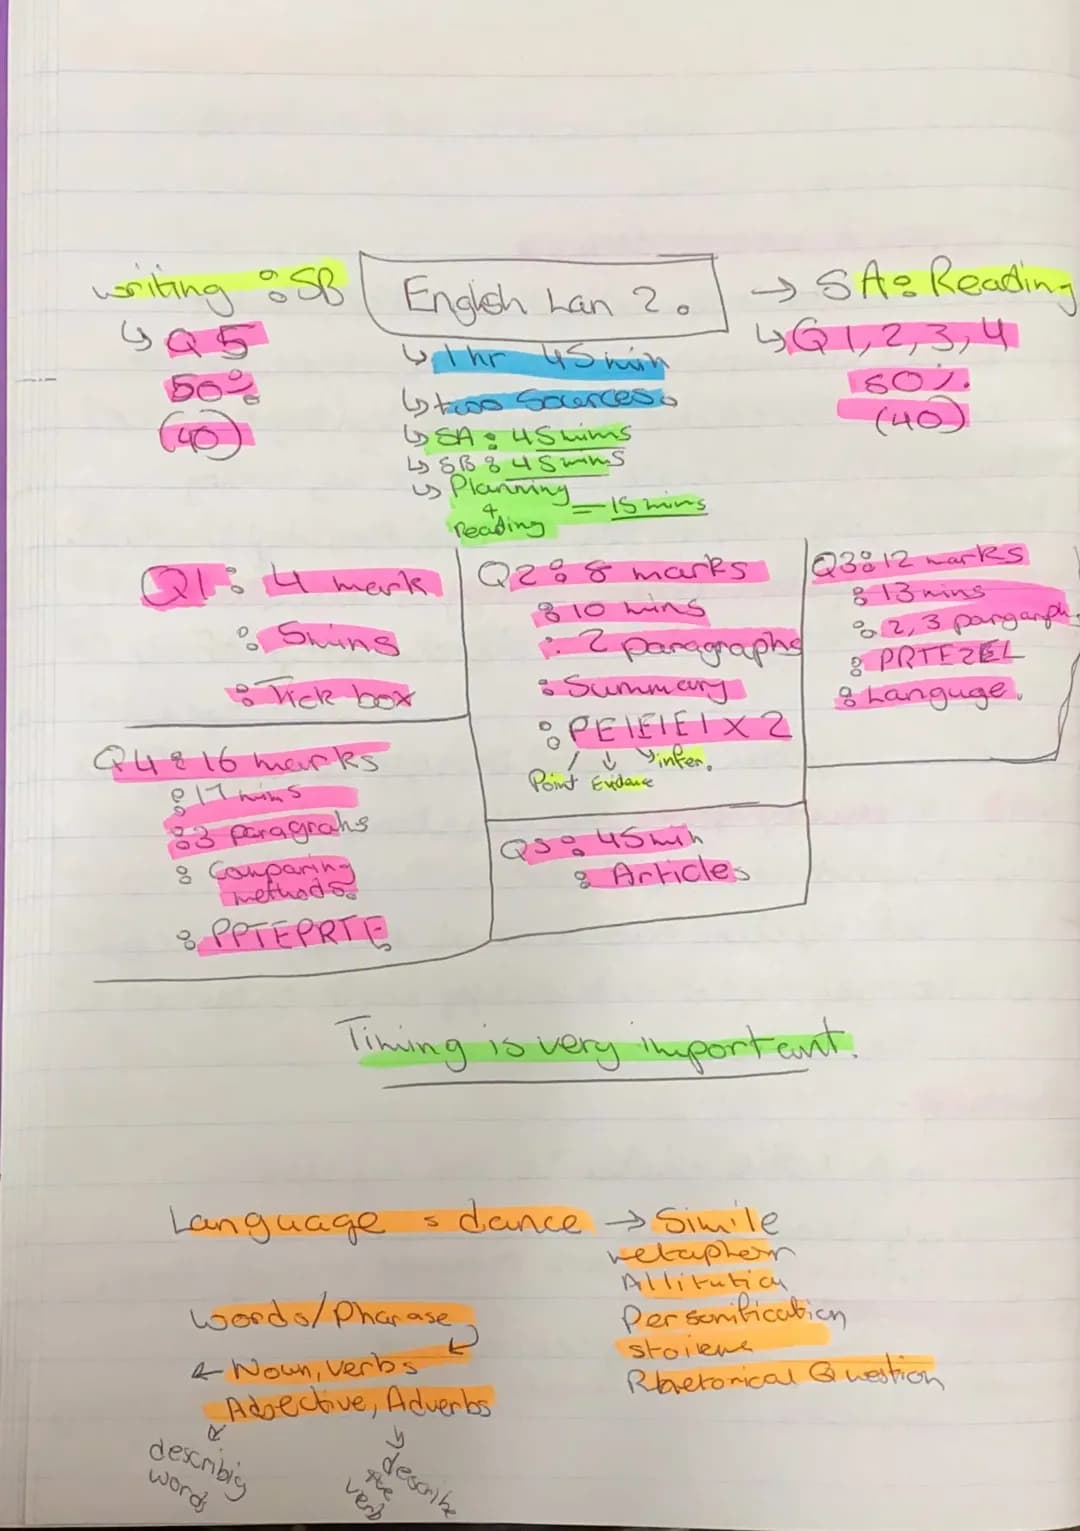 writing : SB
↳ Q5
50%
(40)
English Lan 2.
↳ 1hr 45min
↳ two Sources
↳ SA : 45mins
↳ SB : 45mins
↳ Planning
+
Reading
= 15mins
→ SA: Reading
↳ Q1,2,3,4
50%
(40)
Q1: 4 mark
: 5mins
: Tick box
Q2: 8 marks
: 10 mins
: 2 paragraphs
: Summary
: PEIEIEI x 2
Point Evidance infer.
Q3: 12 marks
: 13 mins
: 2,3 pargarph
: PRTEZEL
: Languge.
Q4: 16 marks
: 17 mins
: 3 paragrahs
: Comparing
methods.
: PPTEPRTE
Q5: 45min
: Articles
Timing is very important.
Language : dance → Simile
metaphor
Personification
Rhetorical Question
words/Pharase
Noun, verbs
Adjective, Adverbs
describig
words
describe
the
verb